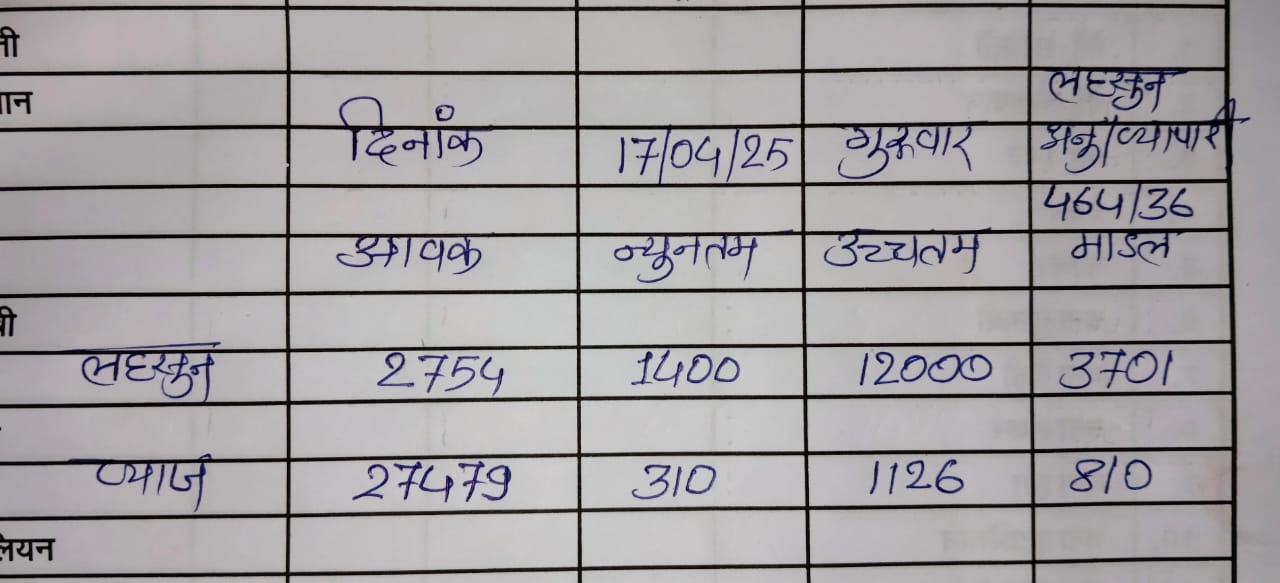 नी
लहसुन
मान
दिनांक 17/04/25 गुरुवार अनु/व्यापारी
464/36
आवक न्युनतम उच्चतम माडल
लहसुन 2754 1400 12000 3701
प्याज 27479 310 1126 810
लियन